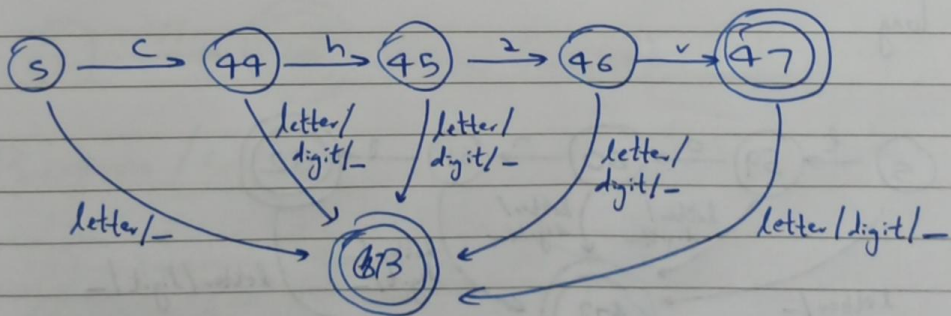 S c 44 h 45 2 46 v 47
letter/ digit/_
letter/ digit/_
letter/ digit/_
letter/_
letter/digit/_